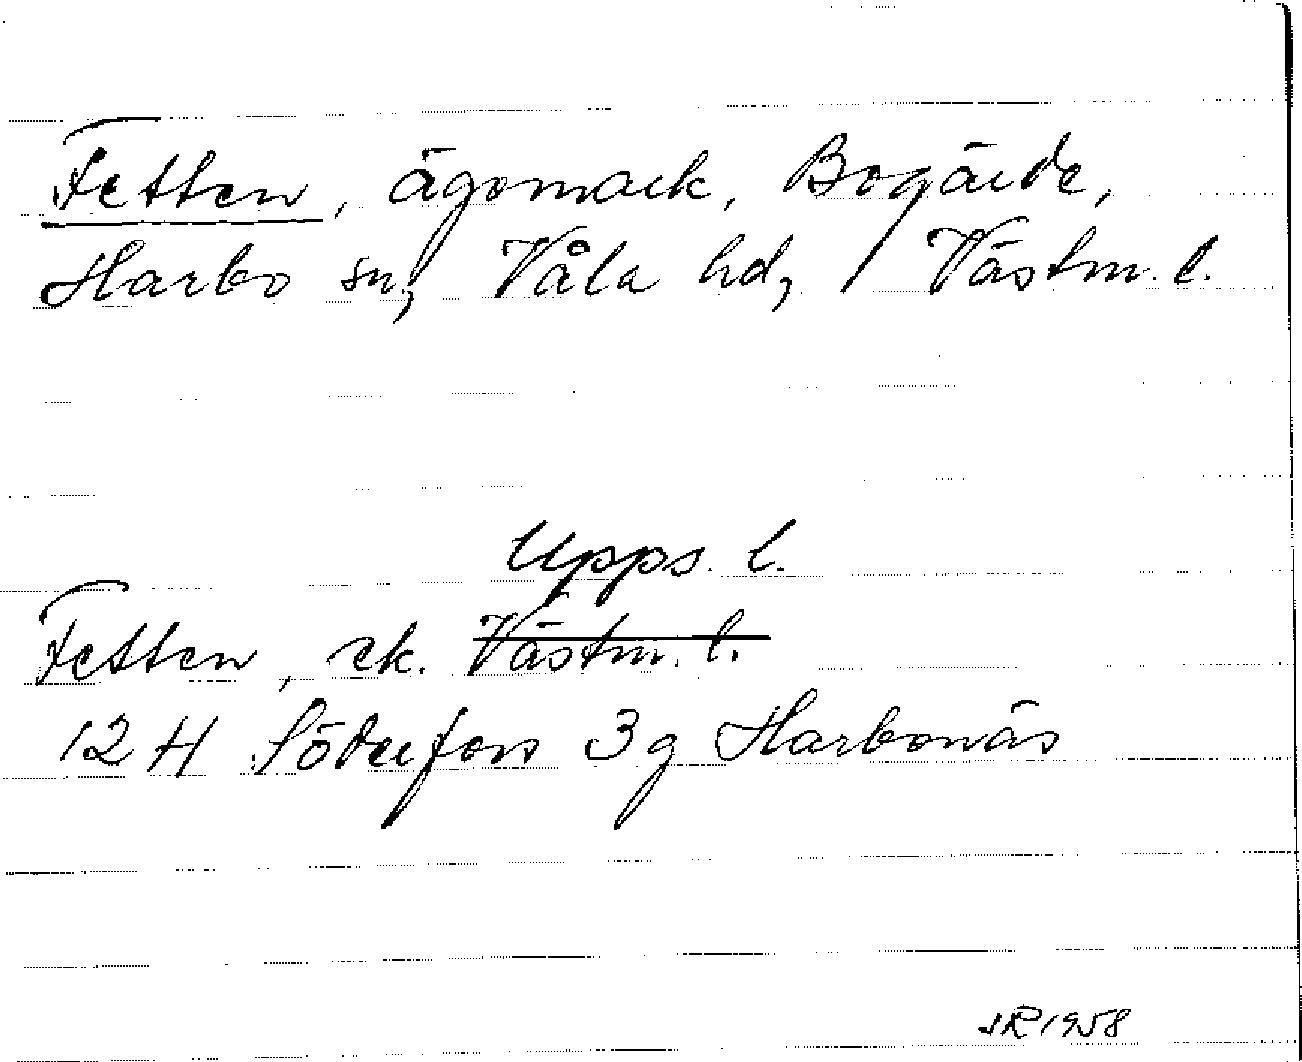 Fetten, ägomark, Bogärde,
Harbo sn, Våla hd, Västm. l.
Upps. l.
Fetten, ek. Västm. l.
12 H Söderfors 3 g Harbonäs
JR 1958